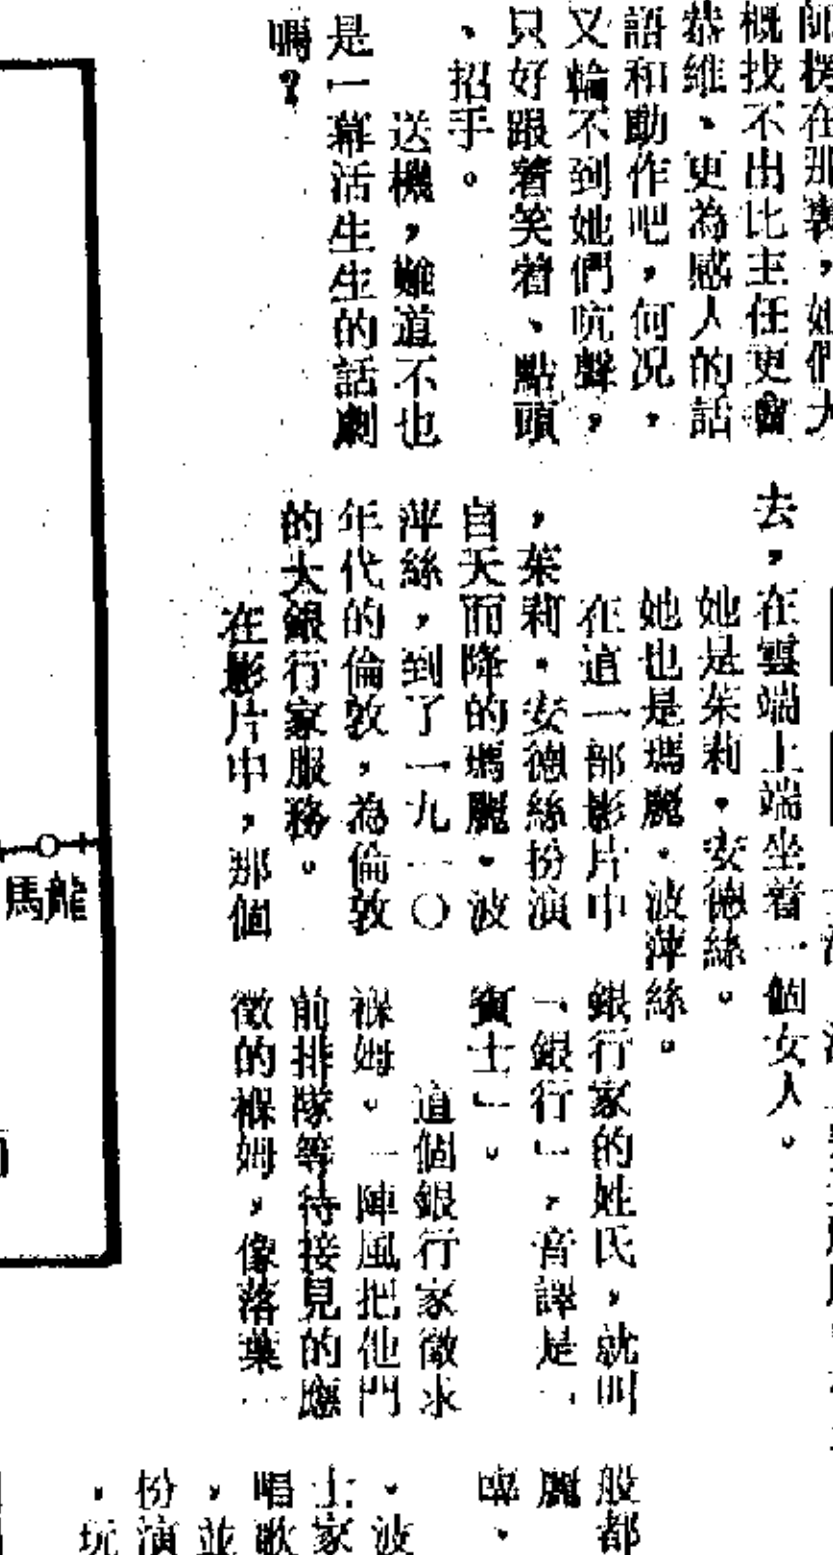 師楞在那裏，她們大
概找不出比主任更會
恭維、更為感人的話
語和動作吧，何况，
又輪不到她們吭聲，
只好跟着笑着、點頭
、招手。
送機，難道不也
是一幕活生生的話劇
嗎？
去，在雲端上端坐着一個女人。
她是茱莉・安德絲。
她也是瑪麗・波萍絲。
在這一部影片中
，茱莉・安德絲扮演
自天而降的瑪麗・波
萍絲，到了一九一〇
年代的倫敦，為倫敦
的大銀行家服務。
在影片中，那個
銀行家的姓氏，就叫
「銀行」，音譯是「
賓士」。
這個銀行家徵求
褓姆。一陣風把他門
前排隊等待接見的應
徵的褓姆，像落葉一
般都
麗
臨，
。波
士家
唱歌
，並
扮演
，玩
馬龍